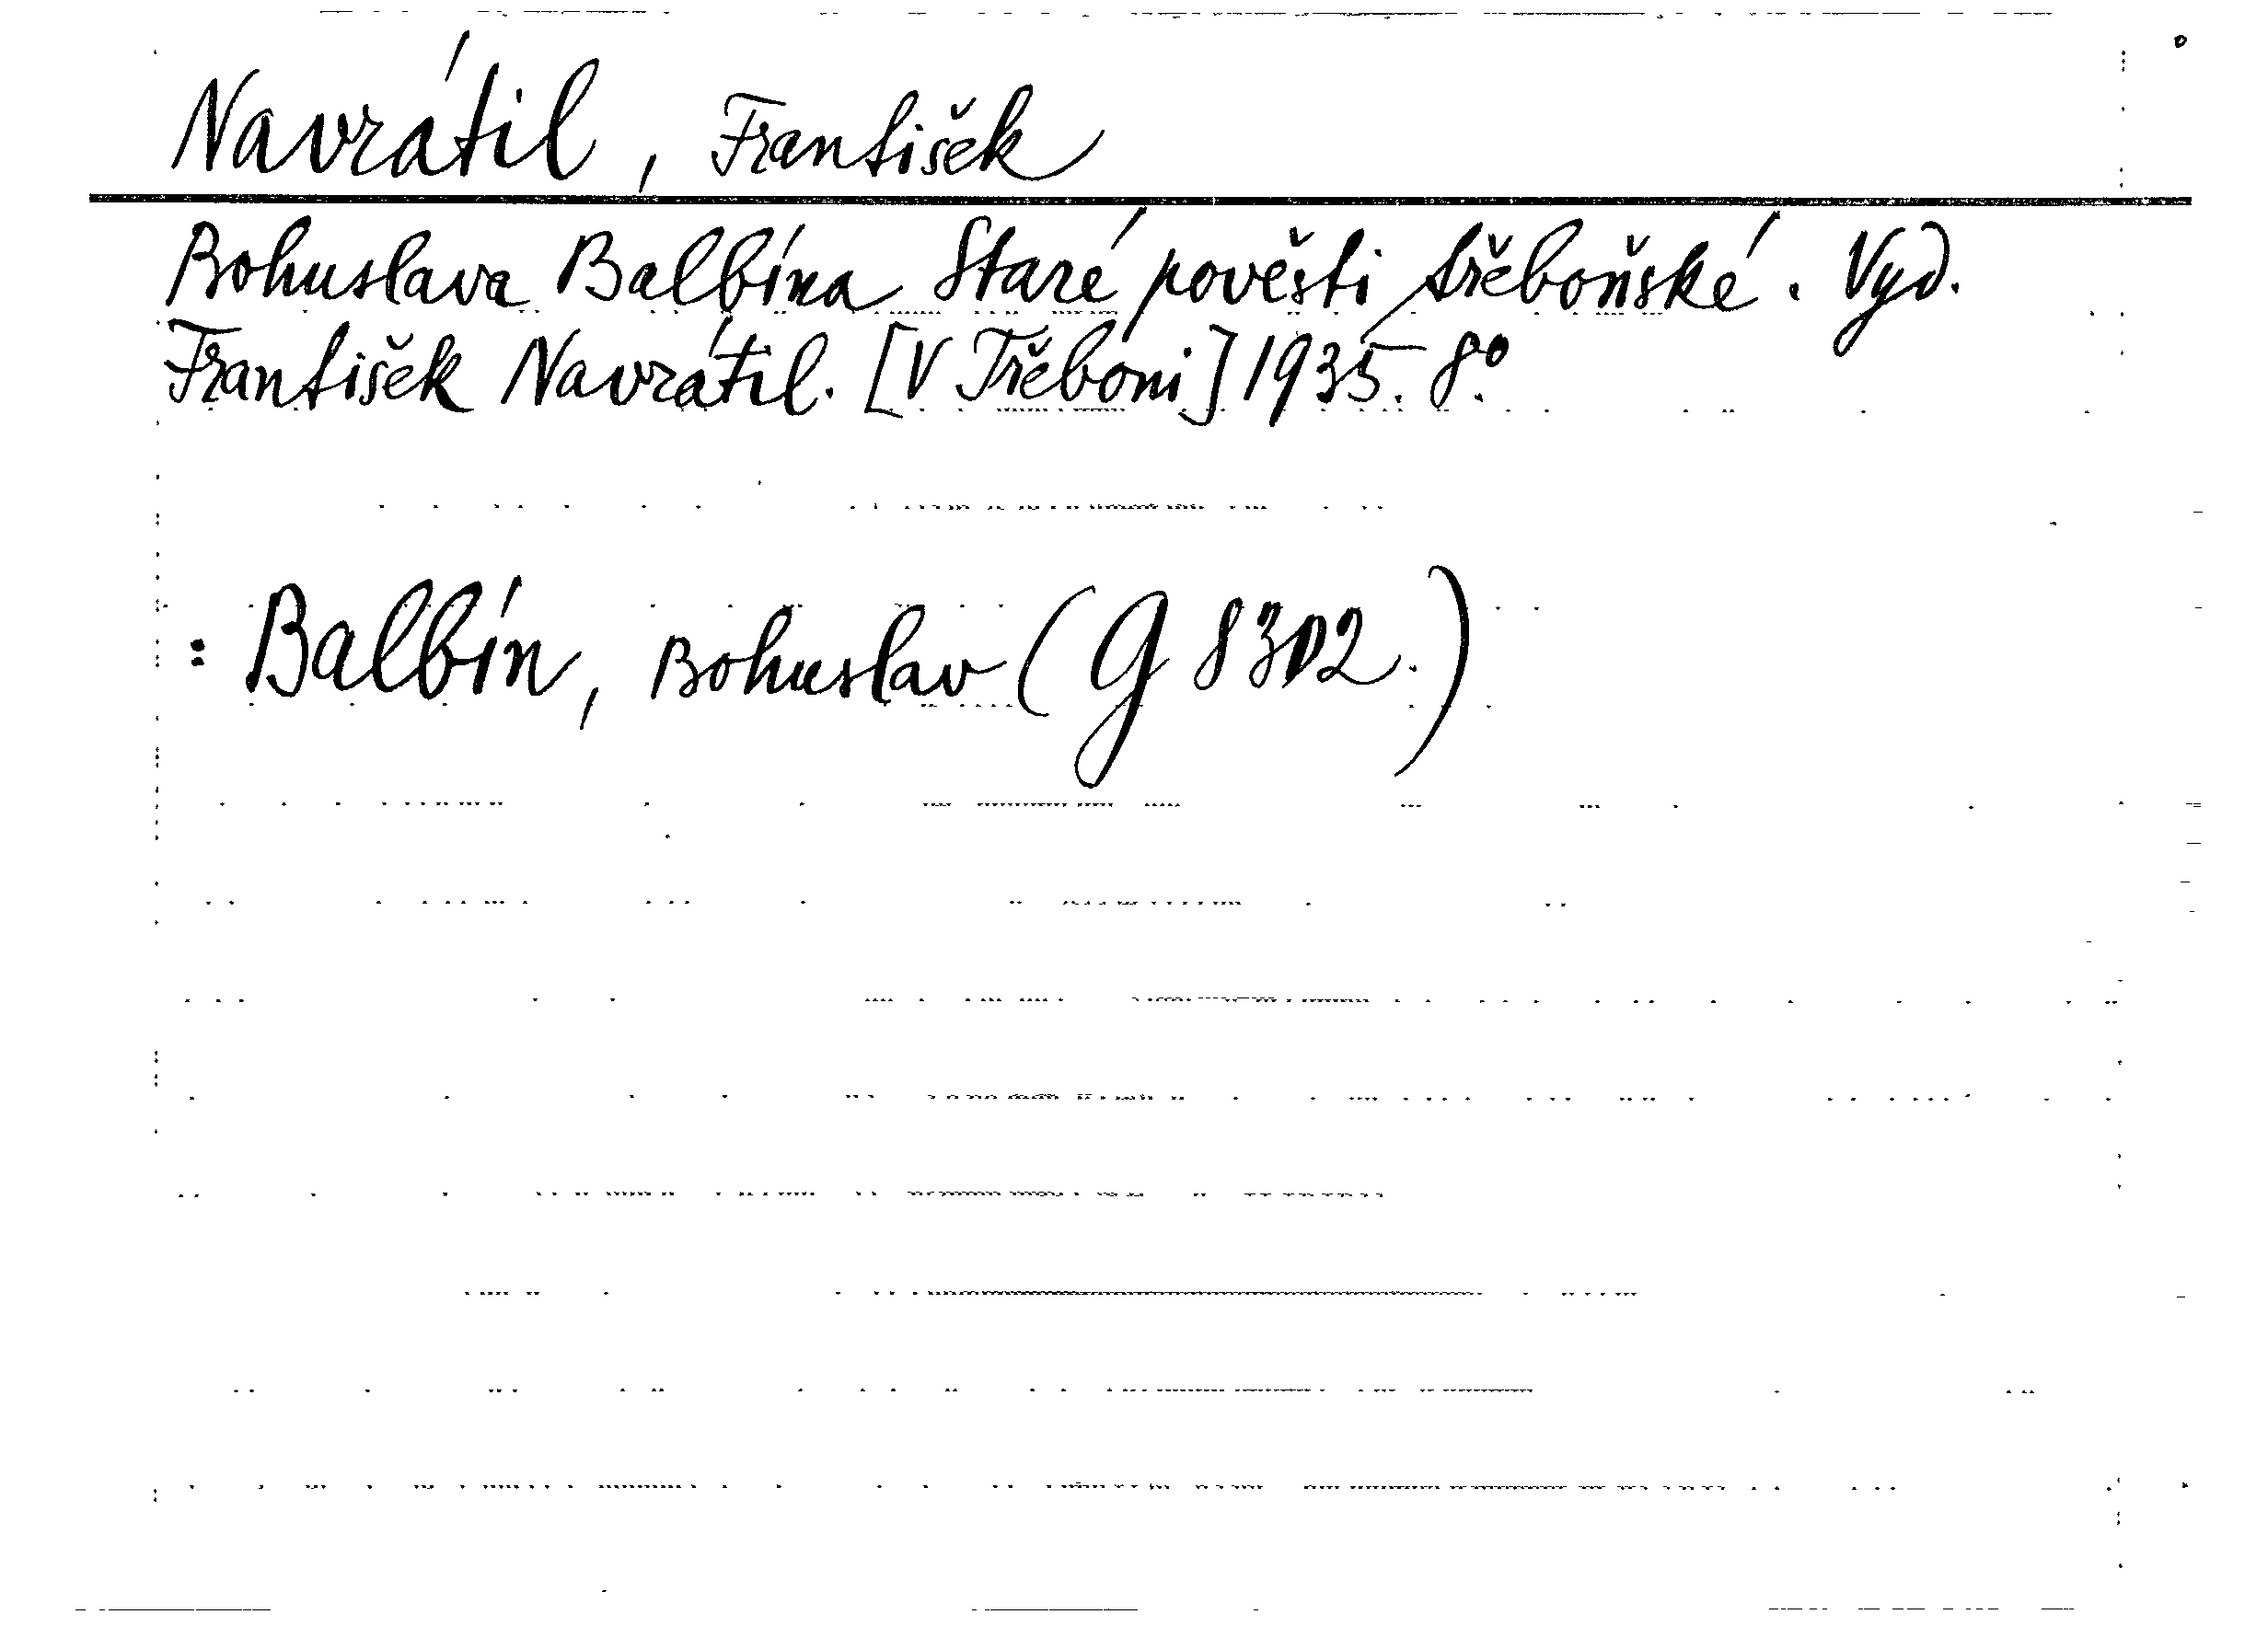 Navrátil, František
Bohuslava Balbína Staré pověsti třeboňské. Vyd.
František Navrátil. [V Třeboni] 1935. 8°.
: Balbín, Bohuslav (G 8302.)